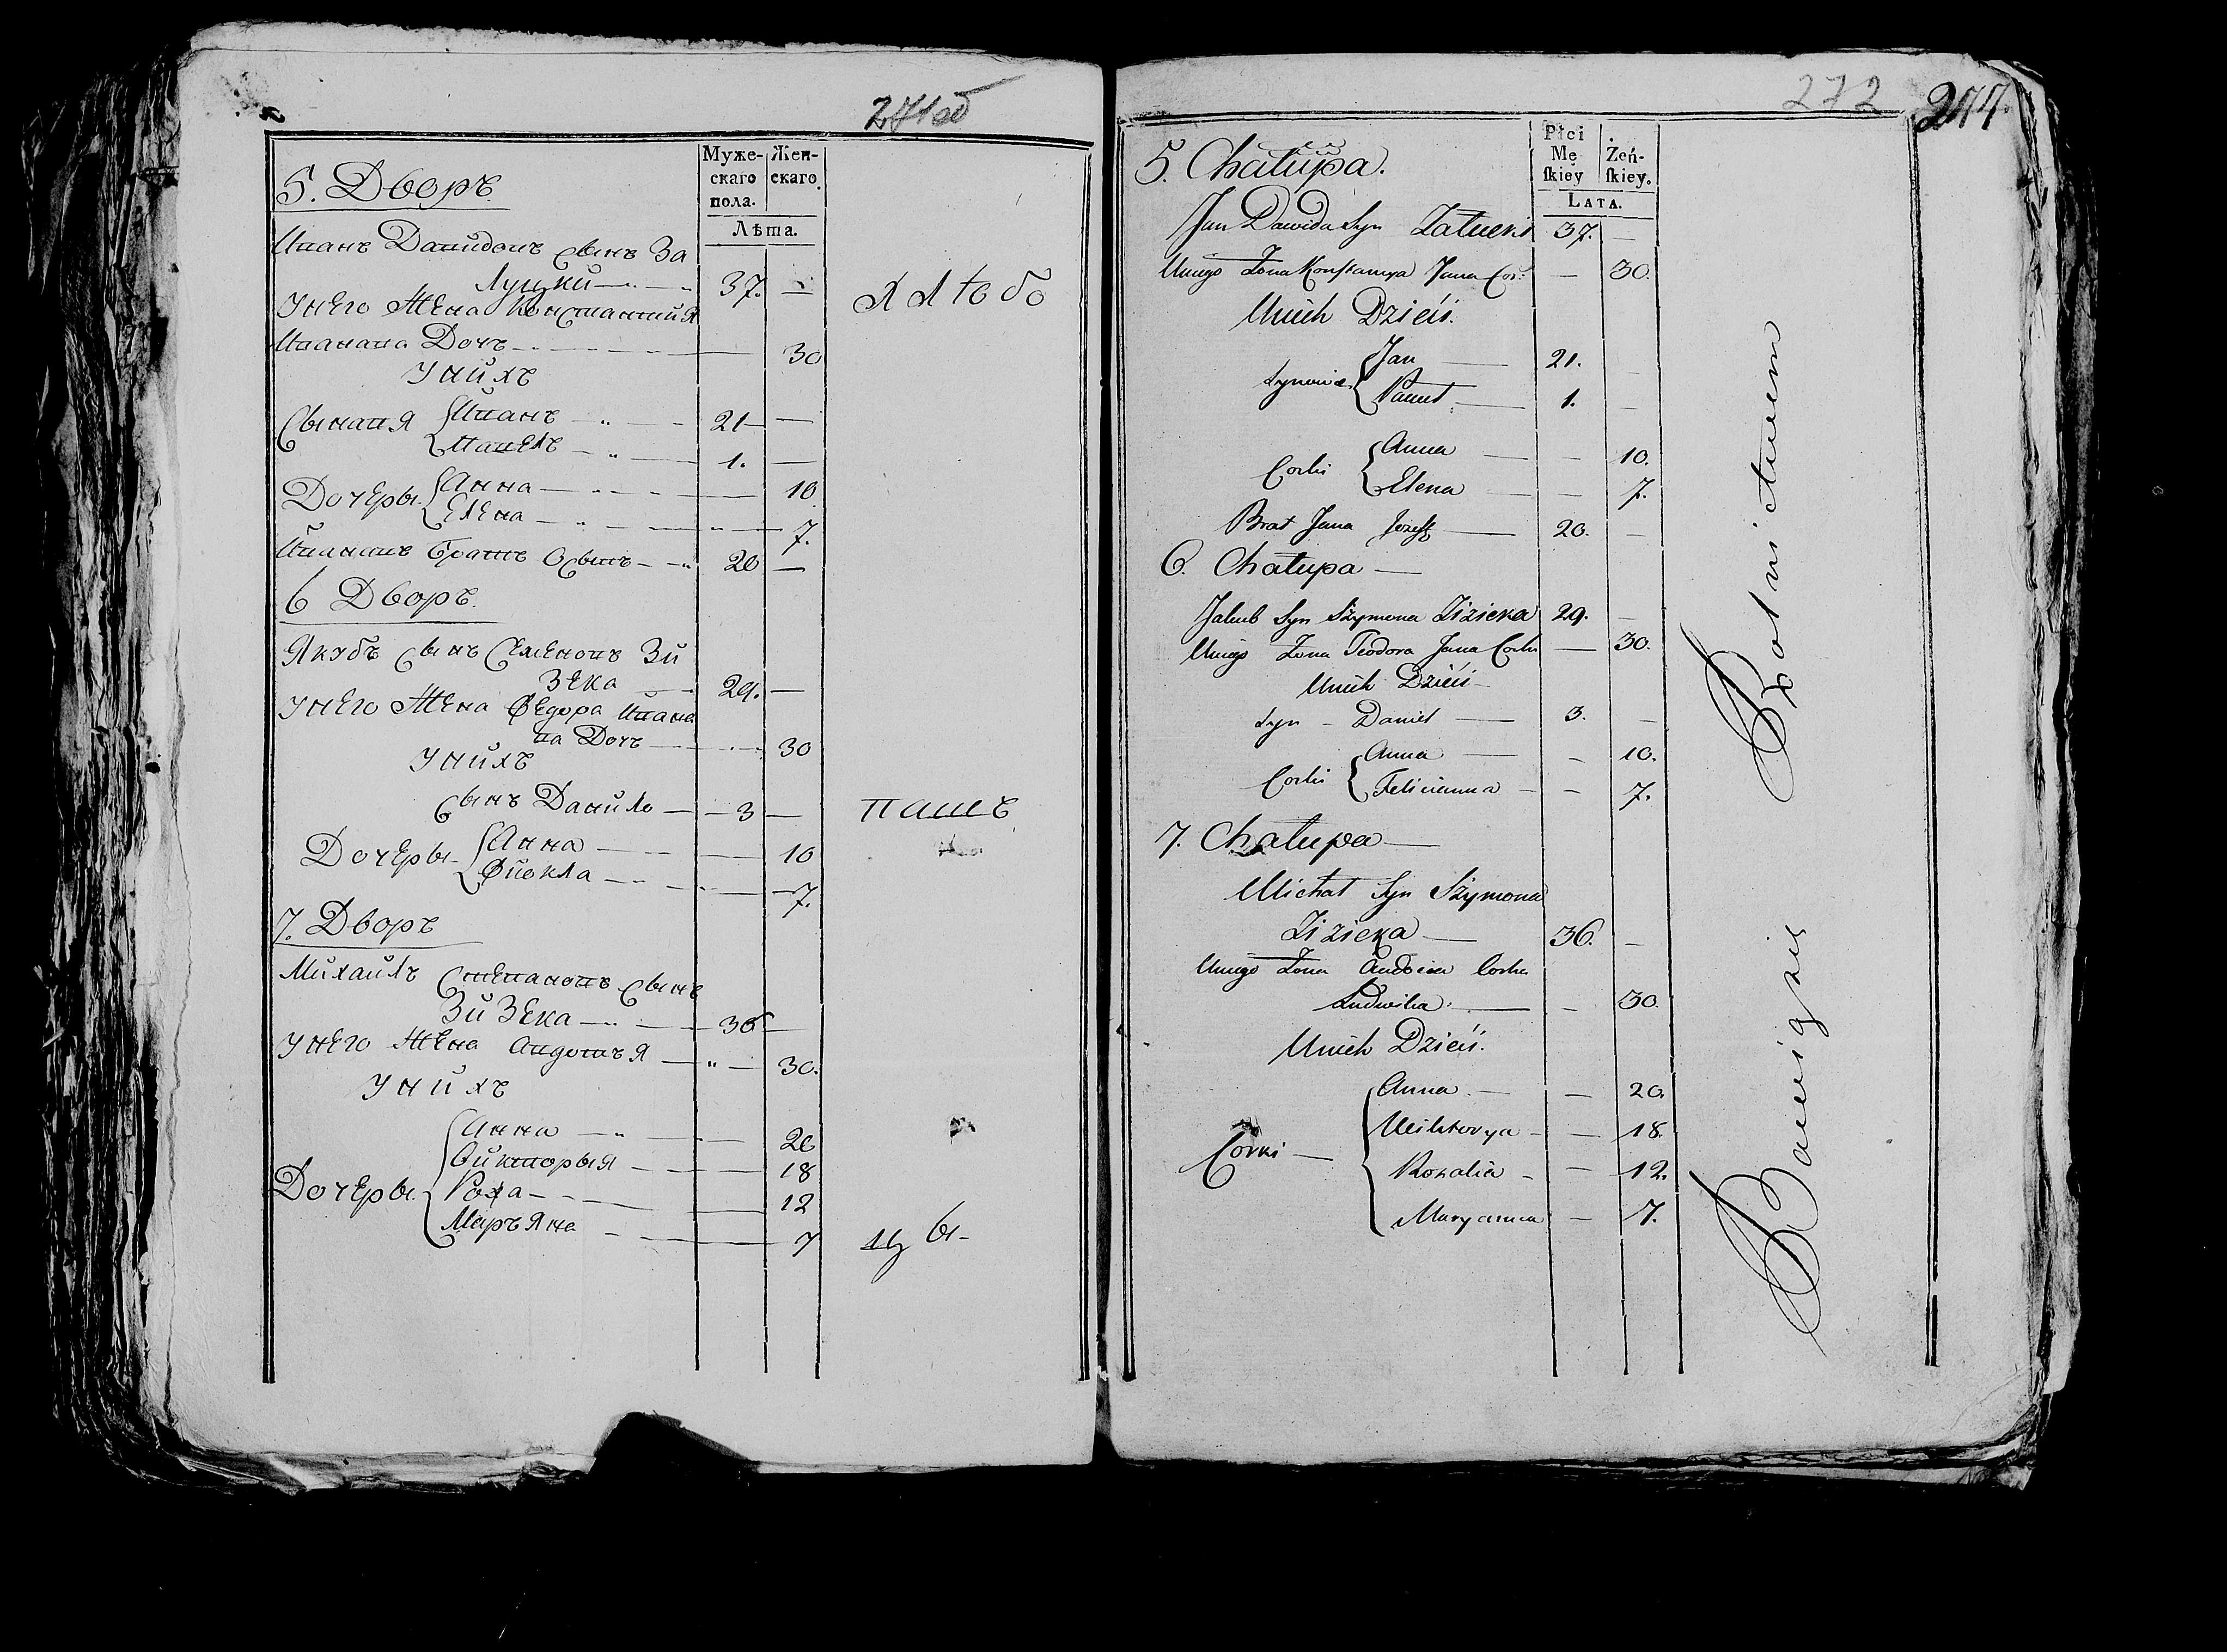 271об
Муже-
скаго
пола.
Жен-
скаго.
Лѣта.
5. Дворъ.
Иванъ Давидовъ сынъ За
луцкий 37. —
У него Жена Констанция
Ивана Дочъ 30
У нихъ
Сыновя Иванъ 21 —
Павелъ 1. —
Дочеры Анна 10
Елена 7.
Ивановъ братъ Осыпъ 20 —
6 Дворъ.
Якубъ сынъ Семеновъ Зи
зека 29. —
У него Жена Федора Ивано
ва Дочъ 30
У нихъ
Сынъ Данило 3 —
Дочеры Анна 10
Фиокла 7.
7. Дворъ
Михаилъ Степановъ сынъ
Зизека 36 —
У него Жена Авдотъя 30.
У нихъ
Анна 20
Виктория 18
Дочеры Роза 12
Маръяна 7
272
277.
Płci
Mę
skiey
Żeń-
skiey.
LATA.
5. Chałupa.
Jan Dawida Syn Załucki 37. —
Uniego Zona Konstancya Jana Cor: — 30.
Unich Dzieci.
Synowie Jan 21. —
Paweł 1. —
Corki Anna — 10.
Elena — 7.
Brat Jana Jozeff 20. —
6. Chałupa —
Jakub Syn Szymona Zizieka 29. —
Uniego Zona Teodora Jana Corka — 30.
Unich Dzieci —
Syn – Daniel 3. —
Corki Anna — 10.
Felicianna — 7.
7. Chałupa —
Michał Syn Szymona
Zizieka 36. —
Uniego Zona Corka
Ludwika — 30.
Unich Dzieci.
Anna — 20.
Wiktorya — 18.
Corki — Rozalia — 12.
Maryanna — 7.